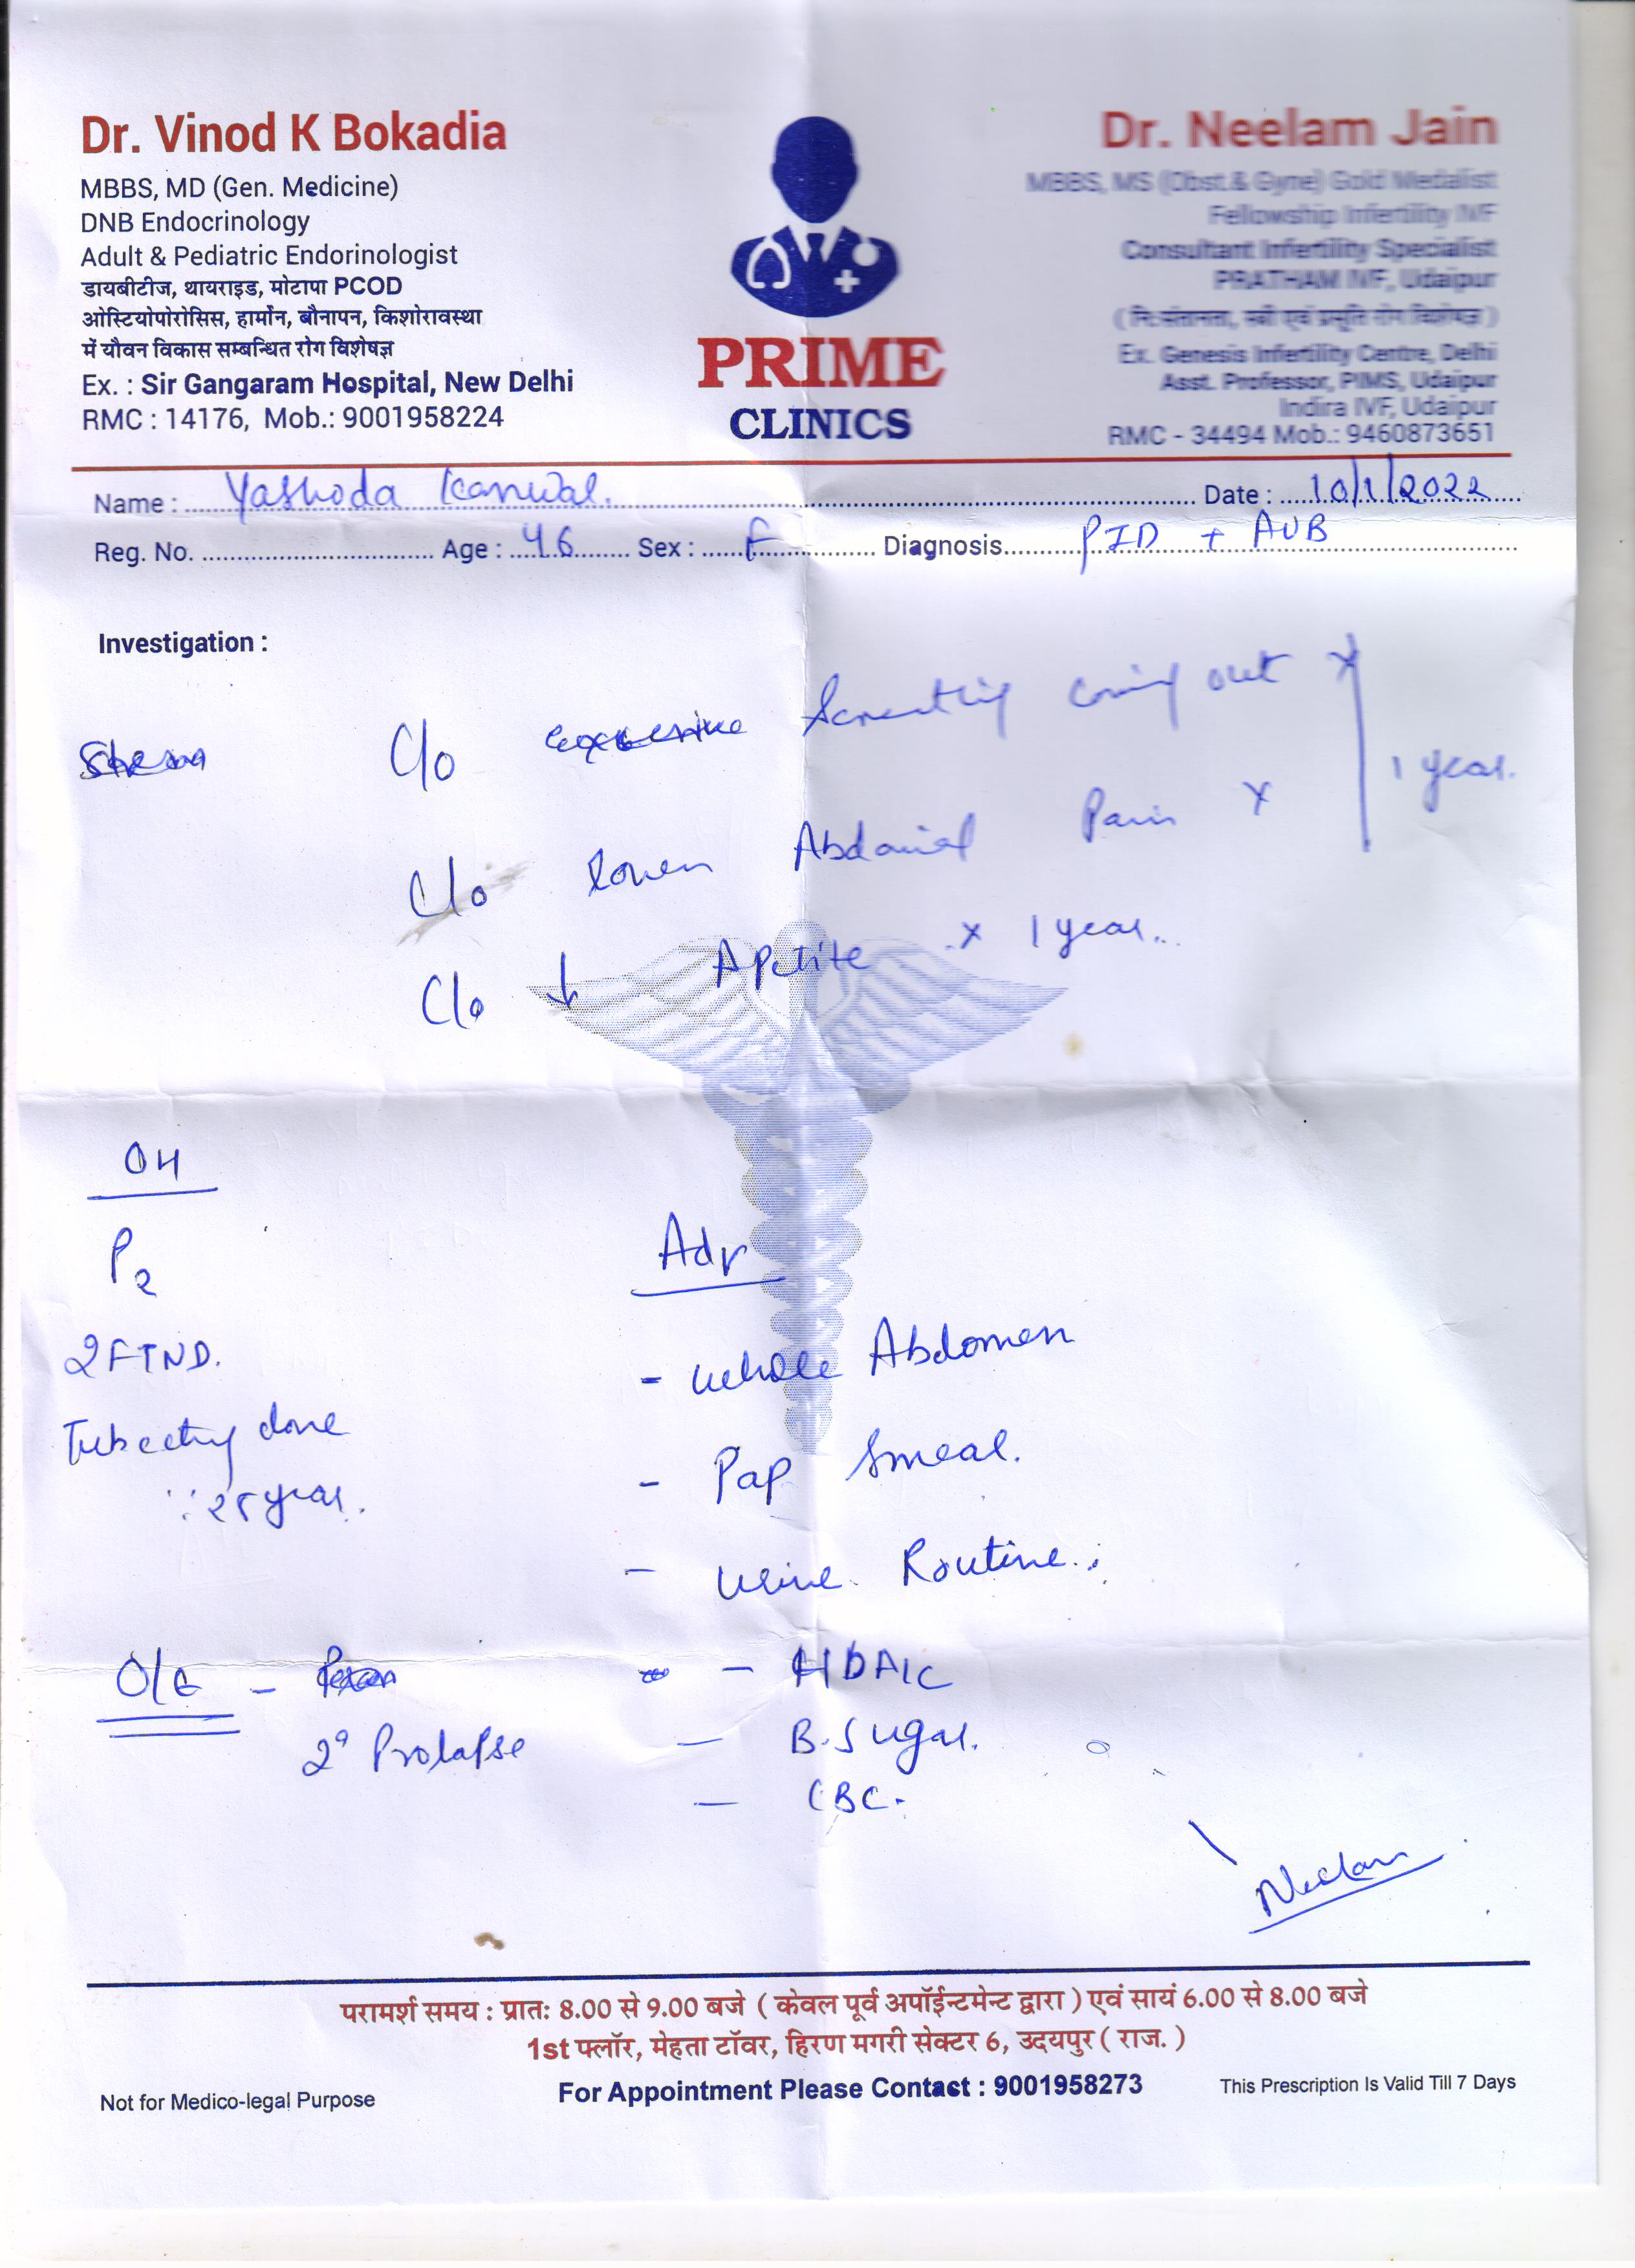 Dr. Vinod K Bokadia
MBBS, MD (Gen. Medicine)
DNB Endocrinology
Adult & Pediatric Endorinologist
डायबीटीज, थायराइड, मोटापा PCOD
ओस्टियोपोरोसिस, हार्मोन, बौनापन, किशोरावस्था
में यौवन विकास सम्बन्धित रोग विशेषज्ञ
Ex. : Sir Gangaram Hospital, New Delhi
RMC : 14176, Mob.: 9001958224
PRIME
CLINICS
Dr. Neelam Jain
MBBS, MS (Obst.& Gyne) Gold Medalist
Fellowship Infertility IVF
Consultant Infertility Specialist
PRATHAM IVF, Udaipur
( नि:संतानता, स्त्री एवं प्रसूति रोग विशेषज्ञ )
Ex. Genesis Infertility Centre, Delhi
Asst. Professor, PIMS, Udaipur
Indira IVF, Udaipur
RMC - 34494 Mob.: 9460873651
Name : Yashoda Kanwal. Date : 10/1/2022
Reg. No. Age : 46 Sex : F Diagnosis PID + AUB
Investigation :
C/o Something coming out x
1 year.
C/o lower Abdominal Pain x
C/o ↓ Apetite x 1 year.
OH
P2
2FTND.
Tubectomy done
Adv
- Whole Abdomen
- Pap Smear.
- Urine Routine.
O/E -
2° Prolapse
- HBA1C
- B.Sugar.
- CBC.
Neelam
परामर्श समय : प्रातः 8.00 से 9.00 बजे ( केवल पूर्व अपॉईन्टमेन्ट द्वारा ) एवं सायं 6.00 से 8.00 बजे
1st फ्लॉर, मेहता टॉवर, हिरण मगरी सेक्टर 6, उदयपुर ( राज. )
Not for Medico-legal Purpose
For Appointment Please Contact : 9001958273
This Prescription Is Valid Till 7 Days